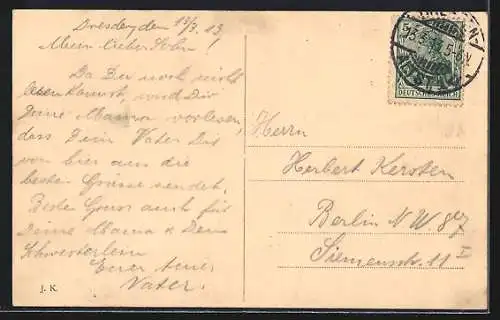 Dresden, den 13/3. 13
Mein lieber Sohn!
Da Du noch nicht
lesen kannst, wird Dir
Deine Mama vorlesen,
dass Dein Vater Dir
von hier aus die
besten Grüsse sendet.
Besten Gruss auch für
Deine Mama & Dein
Schwesterlein
Euer treuer
Vater.
J. K.
DRESDEN
DEUTSCHES REICH
Herrn
Herbert Kersten
Berlin N W. 87
Siemensstr. 11 I